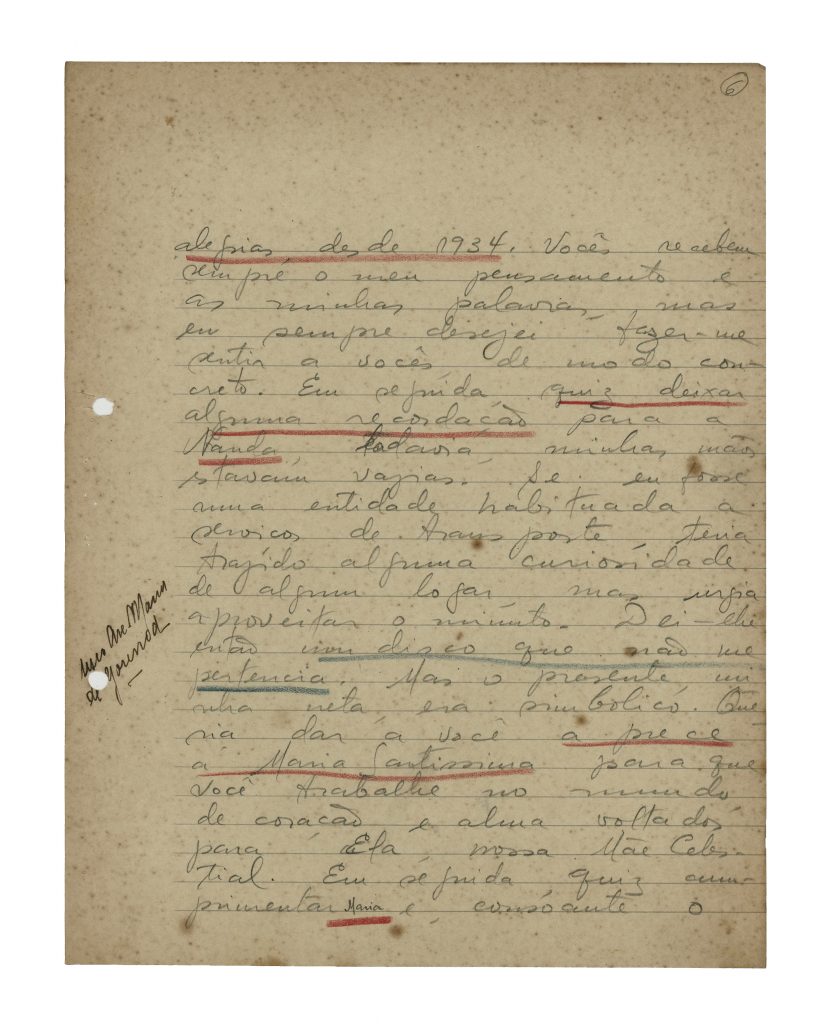 6
alegrias desde 1934. Vocês recebem
sempre o meu pensamento e
as minhas palavras, mas
eu sempre desejei fazer-me
sentir a vocês de modo con-
creto. Em seguida quiz deixar
alguma recordação para a
Nanda, todavia minhas mãos
estavam vazias. Se eu fosse
uma entidade habituada a
serviços de transporte teria
trazido alguma curiosidade
de algum logar, mas urgia
aproveitar o minuto. Dei-lhe
então um disco que não me
pertencia. Mas o presente, mi
nha neta era simbolico. Que
ria dar á você a prece
á Maria Santissima para que
você trabalhe no mundo
de coração e alma voltados
para Ela nossa Mãe Celes-
tial. Em seguida quiz cum-
primentar Maria e consoante o
Ave Maria
de Gounod